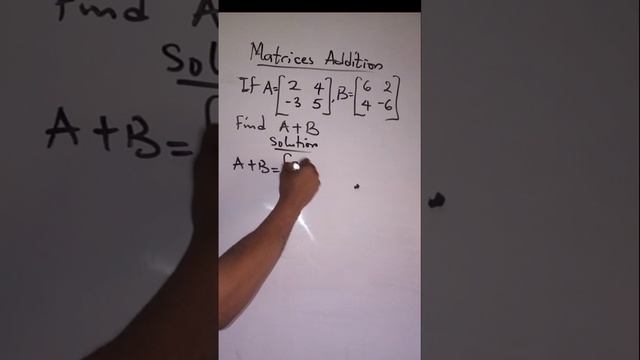 Matrices Addition
If A=[2 4
-3 5], B=[6 2
4 -6]
Find A+B
Solution
A+B=[